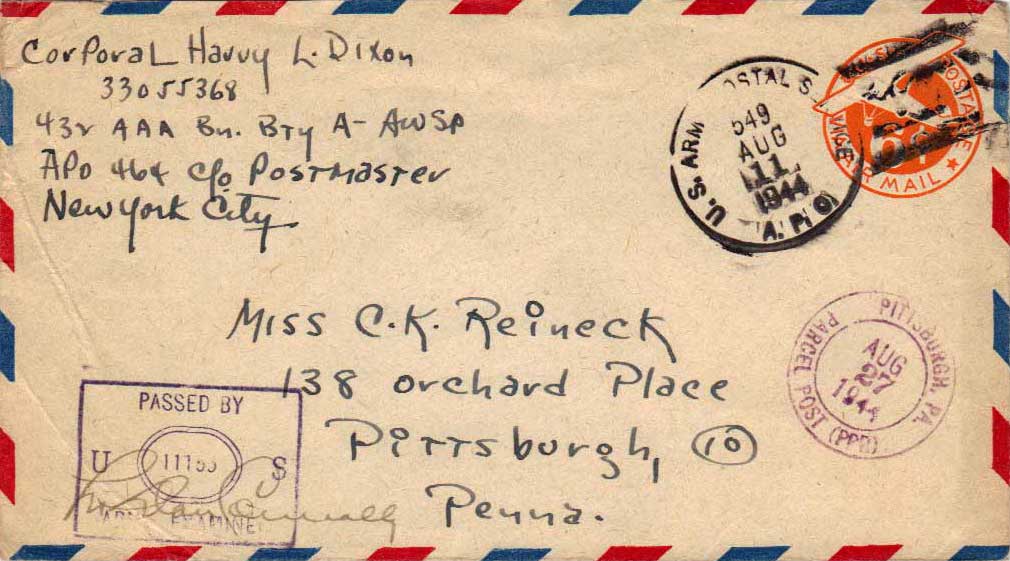 Corporal Harry L. Dixon
33055368
432 AAA Bn. Bty A- AWSP
APO 464 c/o Postmaster
New York City
U.S. ARM POSTAL S VICE
549
AUG
11
1944
A.P.O.
POSTAGE
6¢
AIR MAIL
Miss C.K. Reineck
138 Orchard Place
Pittsburgh, (10)
Penna.
PITTSBURGH, PA.
AUG
27
1944
PARCEL POST (PPR)
PASSED BY
U S
ARMY EXAMINER